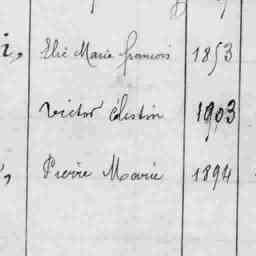 i, Elie Marie francois 1853
Victor Célestin 1903
, Pierre Marie 1894